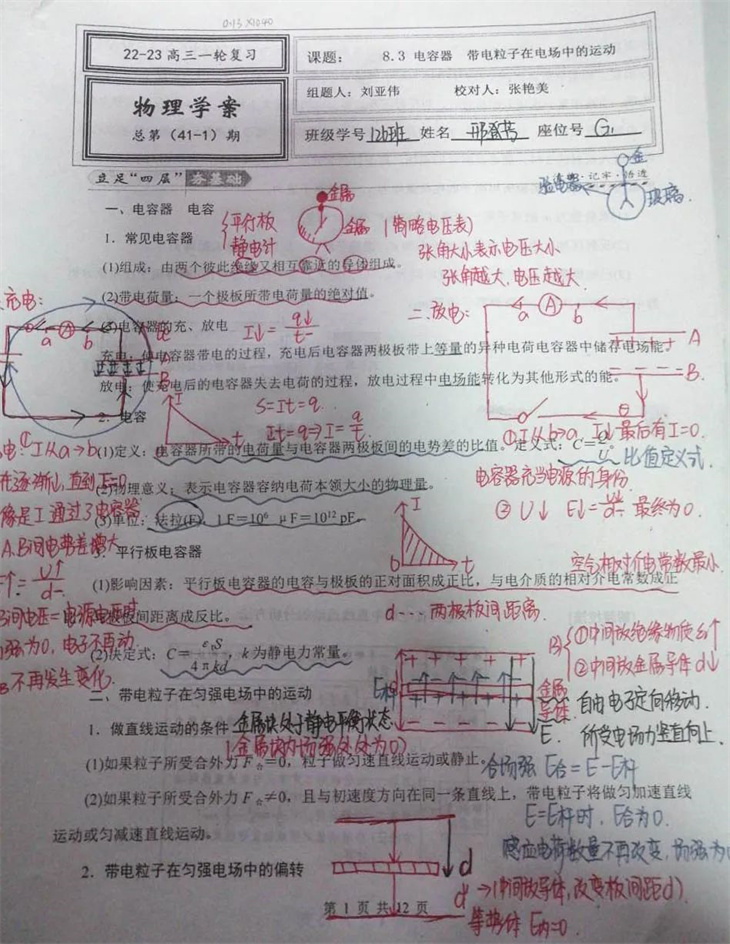 0.13×1040
22-23高三一轮复习
课题： 8.3 电容器 带电粒子在电场中的运动
物理学案
总第（41-1）期
组题人：刘亚伟 校对人：张艳美
班级学号 126班 姓名 座位号 G1
立足“四层” 夯基础
记牢·悟透
验电器
金
玻璃
一、电容器 电容
{平行板
静电计
金属
金属
(简略电压表)
张角大小表示电压大小
张角越大,电压越大
1. 常见电容器
(1)组成：由两个彼此绝缘又相互靠近的导体组成。
(2)带电荷量：一个极板所带电荷量的绝对值。
充电：
二.放电：
(3)电容器的充、放电 I↓=q↓/t
a A b
a A b
A
B
充电：使电容器带电的过程，充电后电容器两极板带上等量的异种电荷电容器中储存电场能。
放电：使充电后的电容器失去电荷的过程，放电过程中电场能转化为其他形式的能。
2. 电容
I
t
S=It=q
It=q⇒I=q/t
①I从b→a, I↓最后有I=0.
①I从a→b
(1)定义：电容器所带的电荷量与电容器两极板间的电势差的比值。定义式：C=Q/U 比值定义式.
在逐渐↓,直到I=0
(2)物理意义：表示电容器容纳电荷本领大小的物理量。
电容器充当电源的身份
像是I通过了电容器
(3)单位：法拉(F)，1F=10⁶ μF=10¹² pF。
② U↓ E↓=U↓/d 最终为0.
A.B间电势差增大
3. 平行板电容器
I
t
空气相对介电常数最小
E↑=U↑/d
(1)影响因素：平行板电容器的电容与极板的正对面积成正比，与电介质的相对介电常数成正
间电压=电源电压时
比，与极板间距离成反比。
d--- 两极板间距离
场强为0,电子不再动
不再发生变化.
(2)决定式：C=εᵣS/4πkd，k为静电力常量。
①中间放绝缘物质ε↑
②中间放金属导体d↓
二、带电粒子在匀强电场中的运动
金属
导体
E
自由电子定向移动.
所受电场力竖直向上.
1. 做直线运动的条件 金属块处于静电平衡状态
(金属块内场强处处为0)
(1)如果粒子所受合外力F合=0，粒子做匀速直线运动或静止。
合场强 E合=E-E杆
(2)如果粒子所受合外力F合≠0，且与初速度方向在同一条直线上，带电粒子将做匀加速直线
运动或匀减速直线运动。
E=E杆时, E合为0.
感应电荷数量不再改变,场强为0
2. 带电粒子在匀强电场中的偏转
d
d'→(中间放导体,改变板间距d)
等势体 E内=0.
第 1 页 共 12 页